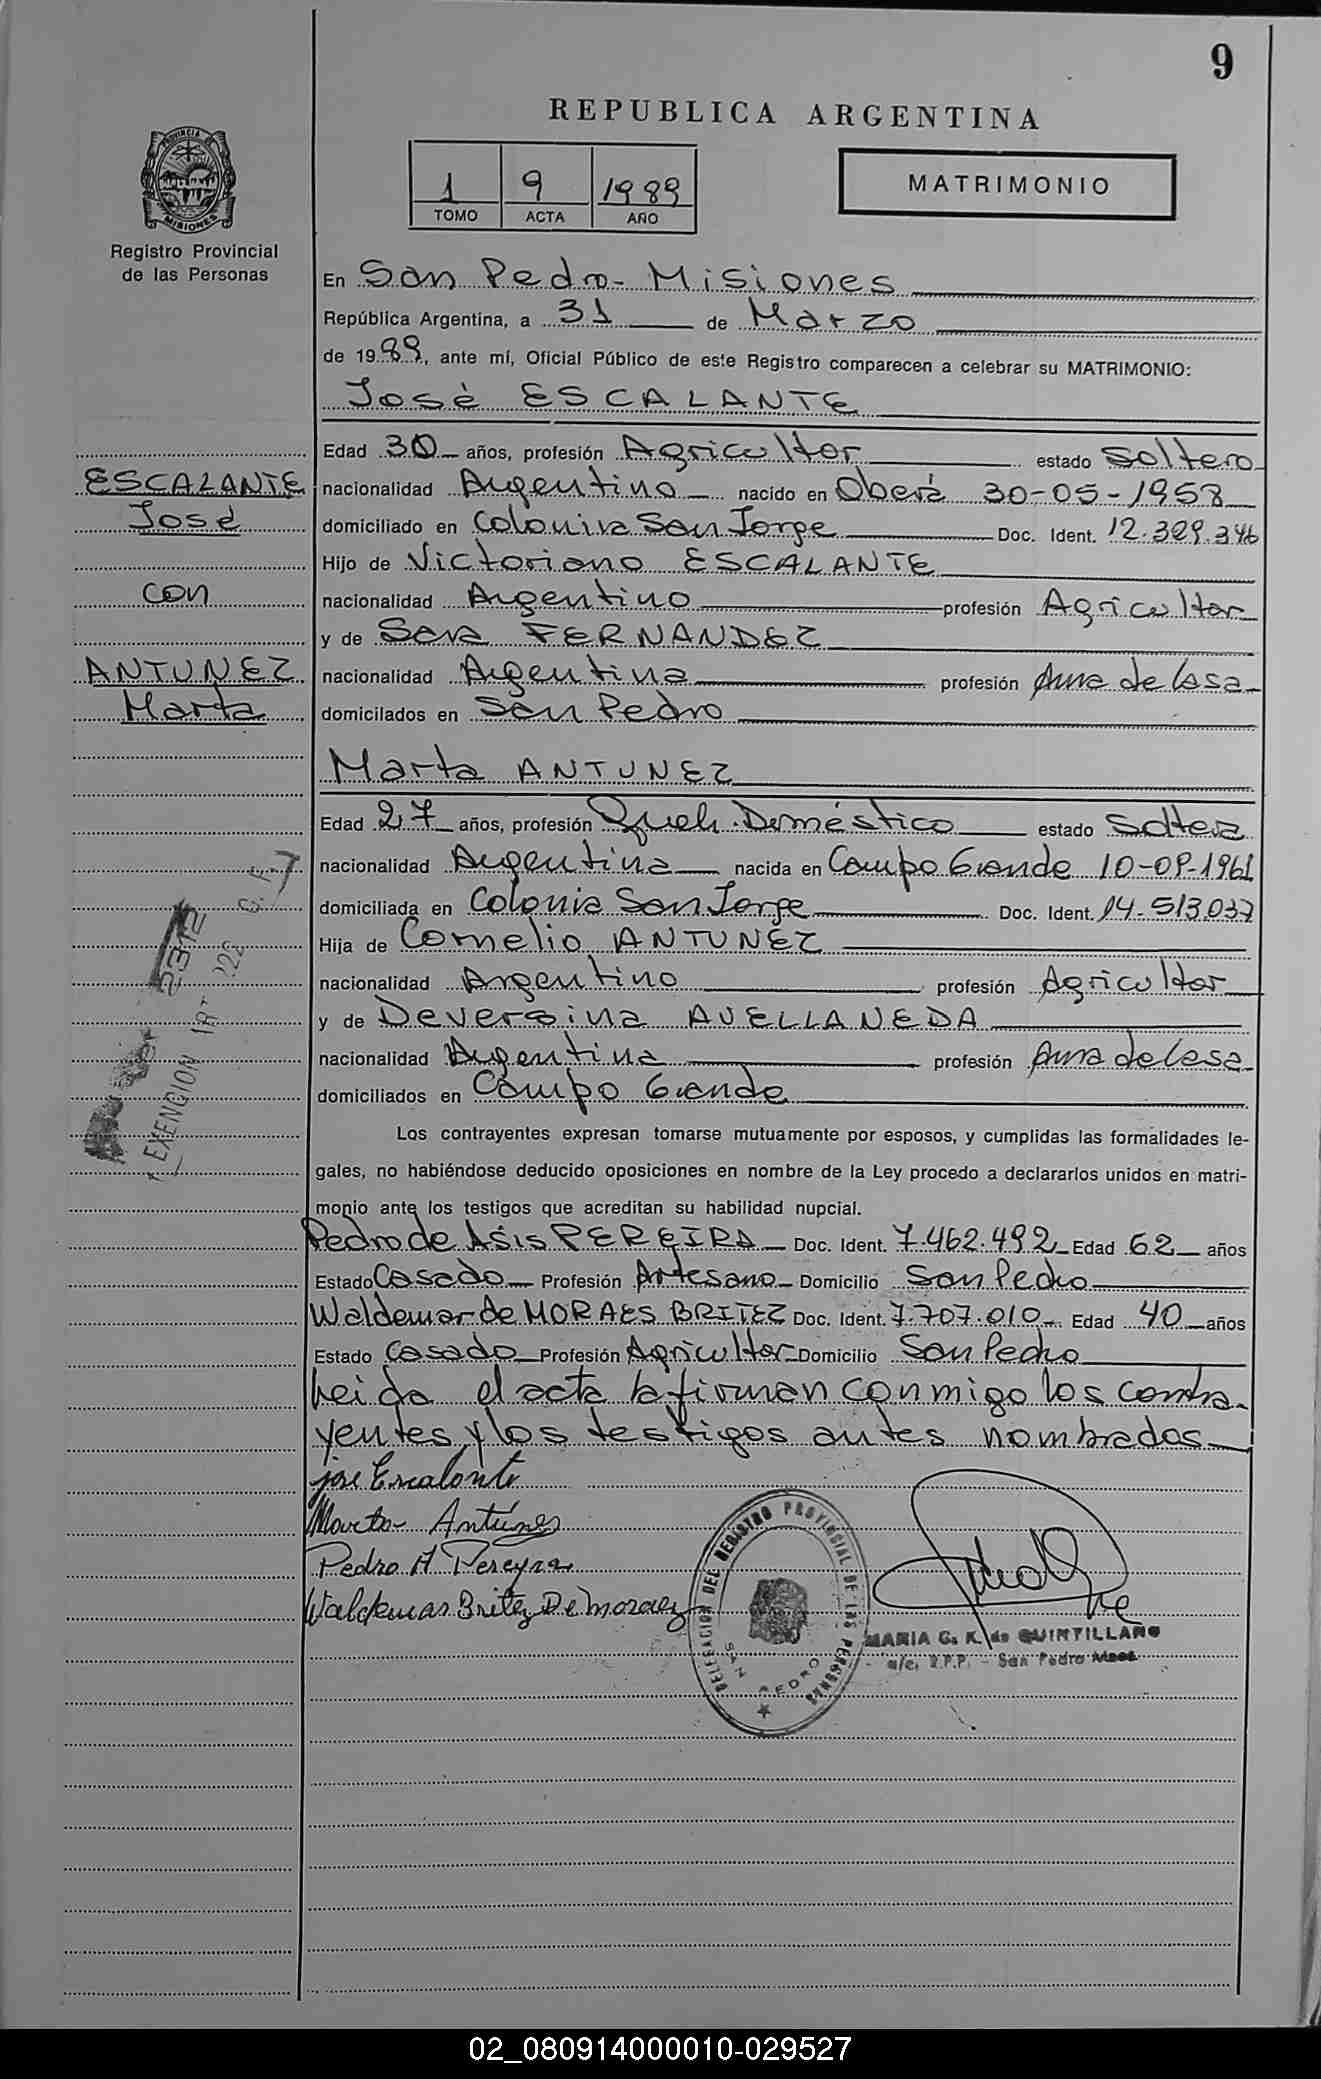 9
REPUBLICA ARGENTINA
1 9 1989
TOMO ACTA AÑO
MATRIMONIO
PROVINCIA DE MISIONES
Registro Provincial
de las Personas
En San Pedro - Misiones
República Argentina, a 31 de Marzo
de 1989, ante mí, Oficial Público de este Registro comparecen a celebrar su MATRIMONIO:
José ESCALANTE
Edad 30 años, profesión Agricultor estado Soltero
ESCALANTE
José
con
ANTUNEZ
Marta
nacionalidad Argentino nacido en Oberá 30-05-1958
domiciliado en Colonia San Jorge Doc. Ident. 12.329.346
Hijo de Victoriano ESCALANTE
nacionalidad Argentino profesión Agricultor
y de Sara FERNANDEZ
nacionalidad Argentina profesión Ama de Casa
domicilados en San Pedro
Marta ANTUNEZ
Edad 27 años, profesión Queh. Doméstico estado Soltera
nacionalidad Argentina nacida en Campo Grande 10-09-1961
domiciliada en Colonia San Jorge Doc. Ident. 14.513.037
Hija de Cornelio ANTUNEZ
nacionalidad Argentino profesión Agricultor
y de AVELLANEDA
nacionalidad Argentina profesión Ama de Casa
domiciliados en Campo Grande
EXENCION ART 222 C. F.
Los contrayentes expresan tomarse mutuamente por esposos, y cumplidas las formalidades le-
gales, no habiéndose deducido oposiciones en nombre de la Ley procedo a declararlos unidos en matri-
monio ante los testigos que acreditan su habilidad nupcial.
Pedro de Asis PEREIRA Doc. Ident. 7.462.492 Edad 62 años
Estado Casado Profesión Artesano Domicilio San Pedro
Waldemar de MORAES BRITEZ Doc. Ident. 7.707.010 Edad 40 años
Estado Casado Profesión Agricultor Domicilio San Pedro
Leida el acta la firman conmigo los contra-
yentes y los testigos antes nombrados
jose Escalante
Marta Antúnes
Pedro A Pereyra
Waldemar Britez De moraez
DELEGACION DEL REGISTRO PROVINCIAL DE LAS PERSONAS
SAN PEDRO
MARIA G. K. de QUINTILLANO
a/c. R.P.P. - San Pedro Mnes.
02_080914000010-029527